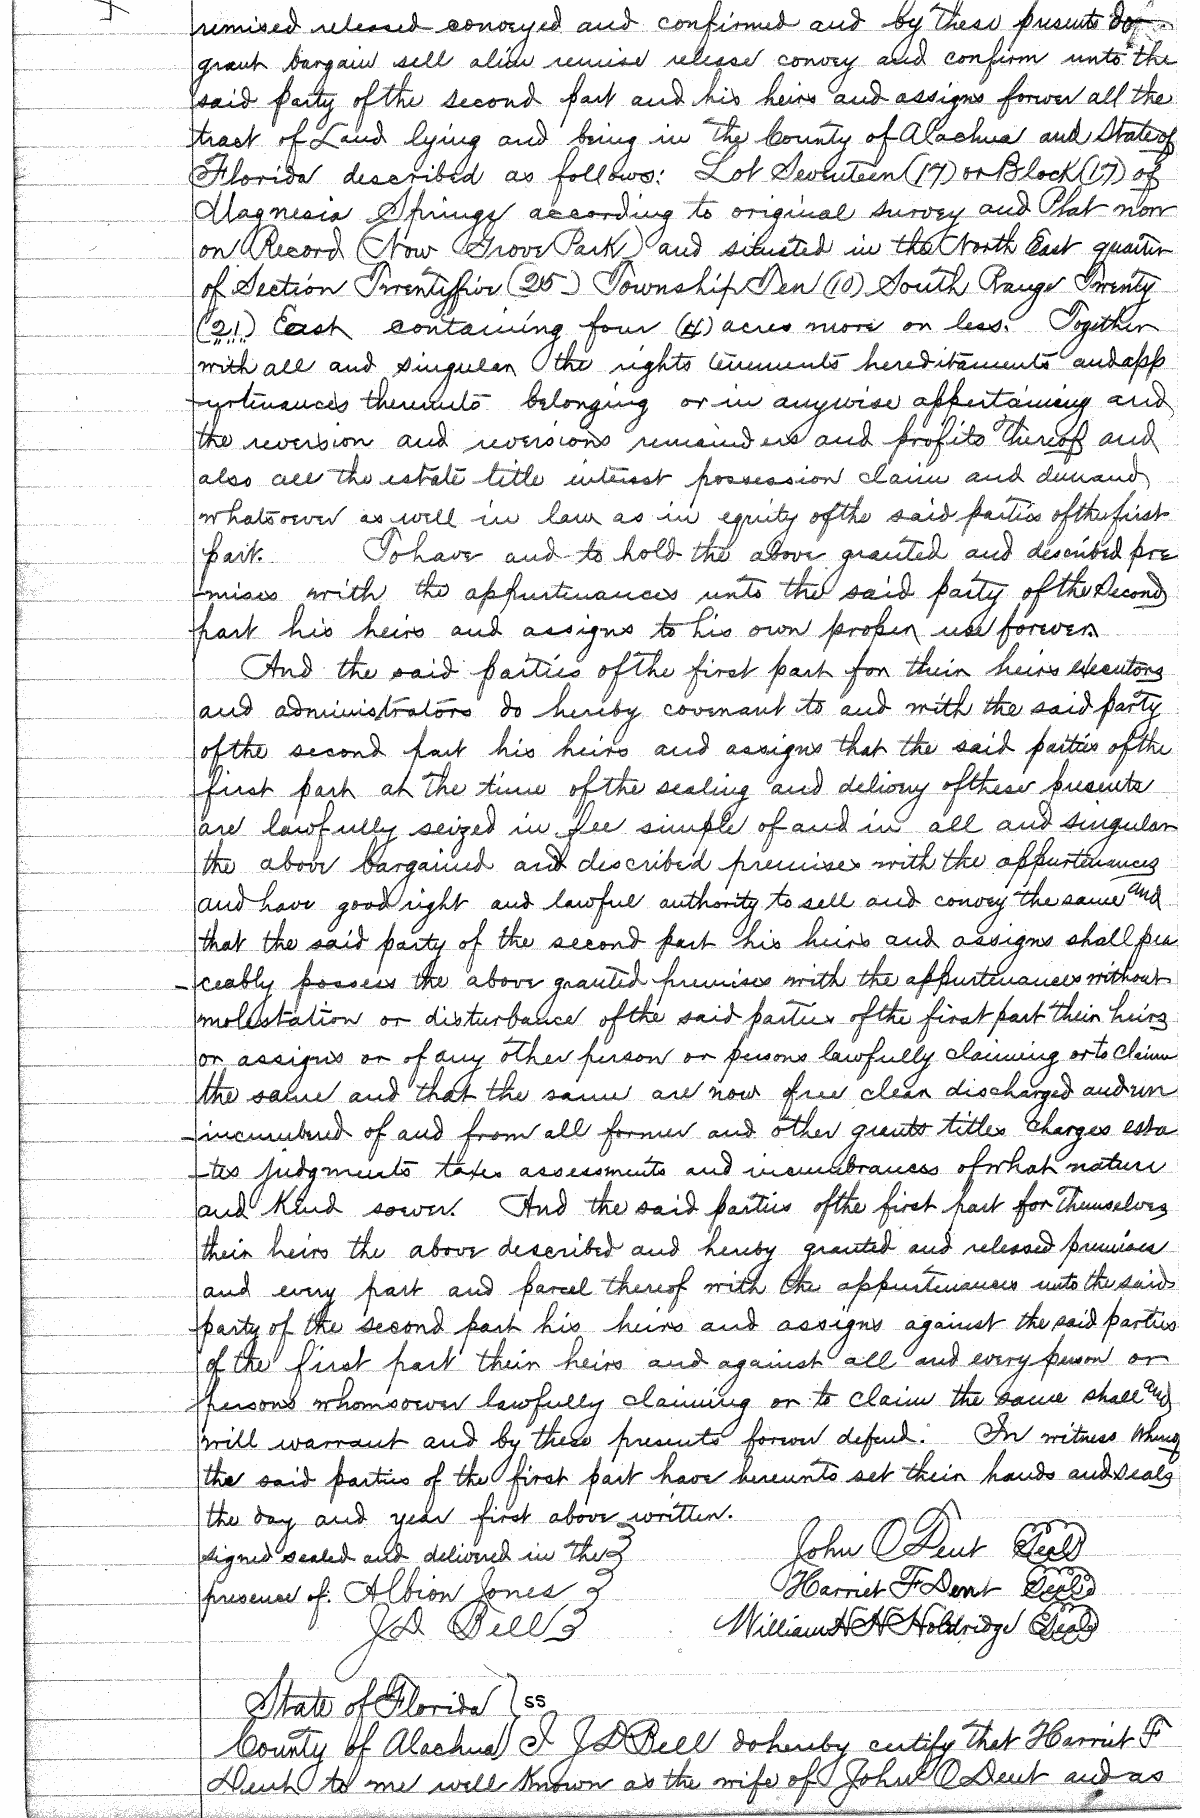 remised released conveyed and confirmed and by these presents do
grant bargain sell alien remise release convey and confirm unto the
said party of the second part and his heirs and assigns forever all the
tract of Land lying and being in the County of Alachua and State of
Florida described as follows: Lot Seventeen (17) or Block (17) of
Magnesia Springs according to original survey and Plat now
on Record (Now Grove Park) and situated in the North East quarter
of Section Twentyfive (25) Township Ten (10) South Range Twenty
(21) East containing four (4) acres more or less. Together
with all and singular the rights tenements hereditaments and app
-urtenances thereunto belonging or in anywise appertaining and
the reversion and reversions remainders and profits thereof and
also all the estate title interest possession claim and demand
whatsoever as well in law as in equity of the said parties of the first
part. To have and to hold the above granted and described pre
-mises with the appurtenances unto the said party of the Second
part his heirs and assigns to his own proper use forever.
And the said parties of the first part for their heirs executors
and administrators do hereby covenant to and with the said party
of the second part his heirs and assigns that the said parties of the
first part at the time of the sealing and delivry of these presents
are lawfully seized in fee simple of and in all and singular
the above bargained and described premises with the appurtenances
and have good right and lawful authority to sell and convey the same and
that the said party of the second part his heirs and assigns shall pea
-ceably possess the above granted premises with the appurtenances without
molestation or disturbance of the said parties of the first part their heirs
or assigns or of any other person or persons lawfully claiming or to claim
the same and that the same are now free clear discharged and un
-incumbered of and from all former and other grants titles charges esta
-tes judgments taxes assessments and incumbrances of what nature
and kind soever. And the said parties of the first part for themselves
their heirs the above described and hereby granted and released premises
and every part and parcel thereof with the appurtenances unto the said
party of the second part his heirs and assigns against the said parties
of the first part their heirs and against all and every person or
persons whomsoever lawfully claiming or to claim the same shall and
will warrant and by these presents forever defend. In witness whereof
the said parties of the first part have hereunto set their hands and seals
the day and year first above written.
signed sealed and delivered in the John O Dent Seal
presence of: Albion Jones Harriet F Dent Seal
J D Bell William H H Holdridge Seal
State of Florida } ss
County of Alachua } I J D Bell do hereby certify that Harriet F
Dent to me well known as the wife of John O Dent and as